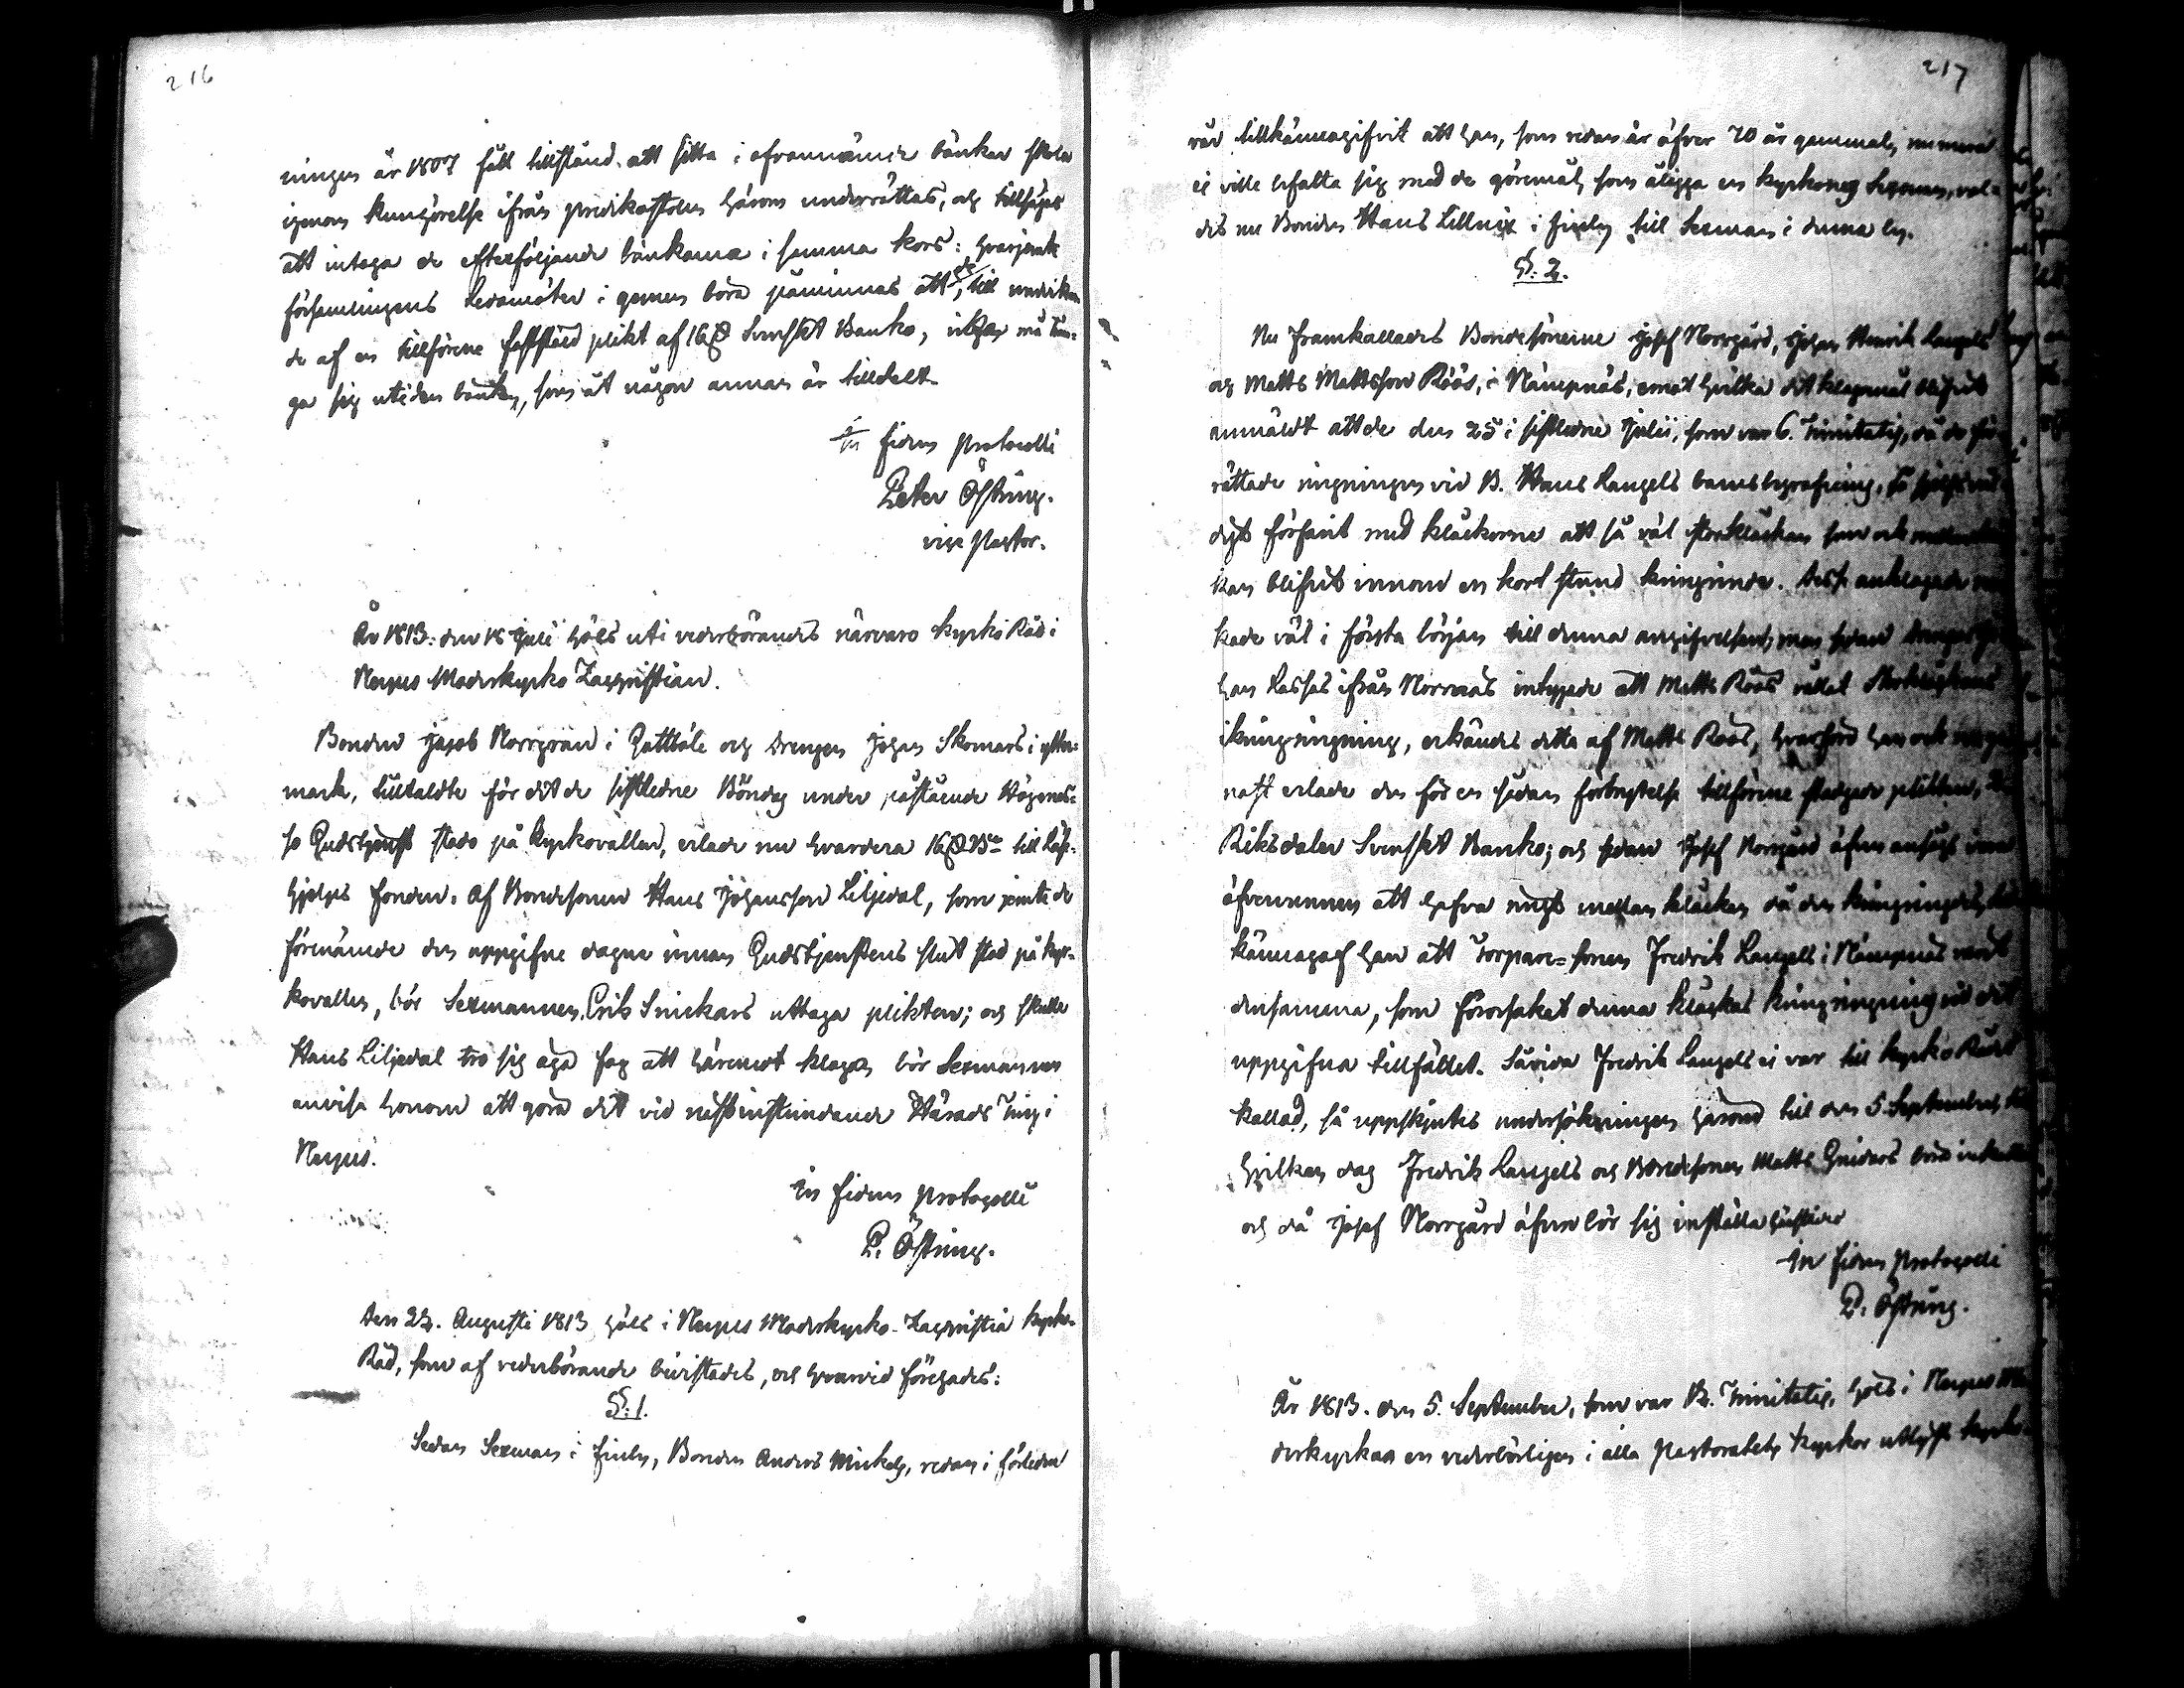 216
ningen år 1807 fått tillstånd att sitta i ofvannämde bänkar skola
igenom kungörelse ifrån predikostolen härom underrättas, och tillsägas
att intaga de efterföljande bänkarna i samma kors: hvarjemte
församlingens Ledamöter i gemen böra påminnas att de, till undvikan-
de af en tillförene faststäld plikt af 16 ß Svenskt Banko, icke må trän-
ga sig uti den bänken, som åt någon annan är tilldelt.
In fidem Protocolli
Peter Östring.
vice Pastor.
År 1813. den 18 Julii hölls uti vederbörandes närvaro Kyrko Råd i
Nerpes Moderkyrko Zacristian.
Bonden Jacob Norrgran i Gottböle och Drengen Johan Skomars i Yttermark,
mark, tilltaldte för det de sistledne Böndag under påstående Högmes-
so Gudstjenst stodo på Kyrkovallen, erlade nu hvardera 16 ß Bco till Läs-
hjelps fonden. Af Bondesonen Hans Johansson Liljedal, som jemte de
förenämde den uppgifne dagen innan Gudstjenstens slut stod på Kyr-
kovallen, bör Sexmannen Erik Snickars uttaga plikten; och skulle
Hans Liljedal tro sig äga fog att häremot klaga, bör Sexmannen
anvisa honom att göra det vid nästinstundande Härads Ting i
Nerpes.
In fidem Protocolli
P. Östring.
Den 22. Augusti 1813 hölls i Nerpes Moderkyrko-Zacristia Kyrko-
Råd, som af vederbörande bivistades, och hvarvid förehades:
§. 1.
Sedan Sexman i Finby, Bonden Anders Mickels, redan i förleden
217
vår tillkännagifvit att han, som redan är öfver 70 år gammal, numera
ei ville befatta sig med de göremål, som åligga en kyrkones Sexman, val-
des nu Bonden Hans Lillnix i Finby till Sexman i denna by.
§. 2.
Nu framkallades Bondesönerne Josef Norrgård, Johan Henrik Langels
och Matts Mattsson Röös, i Nämpnäs, emot hvilka det klagomål blifvit
anmäldt att de den 25 i sistledne Julii, som var 6. Trinitatis, då de för-
rättade ringningen vid B. Hans Langels barns begrafning, så
digt förfarit med klockorne att så väl storklockan som ock
kan blifvit innom en kort stund kringvände. Desse anklagade
kade väl i första början till denna angifvelsen; men sedan Drengen
han Lassas ifrån Norrnäs intygade att Matts Röös vållat Storklockans
kringringning, erkändes detta af Matts Röös, hvarföre han ock
nast erlade den för en sådan förbrytelse tillförene stadgade plikten,
Riksdaler Svenskt Banko; och sedan Josef Norrgård äfven ansågs vara
öfvervunnen att hafva ringt mellan klockan då den kringringdes,
kännagaf han att Torpare-sonen Fredrik Langels i Nämpnäs varit
densamma, som förorsakat denna klockas kringringning vid det
uppgifna tillfället. Såvida Fredrik Langels ei var till Kyrko Rådet
kallad, så uppskjutes undersökningen härom till den 5 September, till
hvilken dag Fredrik Langels och Bondesonen Matts böra inkallas
och då Josef Norrgård äfven bör sig inställa
In fidem Protocolli
P. Östring.
År 1813. den 5. September, som var 12. Trinitatis, hölls i Nerpes Mo-
derkyrka en vederbörligen i alla Pastoratets Kyrkor utlyst Kyrko-